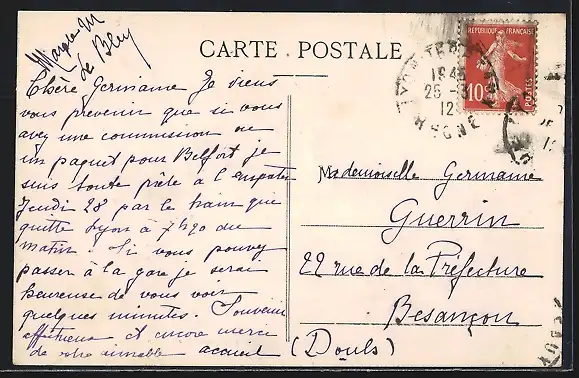 CARTE POSTALE
RÉPUBLIQUE FRANÇAISE
10c
POSTES
RHONE
Chère Germaine Je viens
vous prévenir que si vous
avez une commission ou
un paquet pour Belfort je
suis toute prête à l'
Jeudi 28 par le train qui
quitte Lyon à 7h20 du
matin. Si vous pouvez
passer à la gare je serai
heureuse de vous voir
quelques minutes. Souvenir
affectueux et encore merci
de votre aimable accueil
Mademoiselle Germaine
Guerrin
22 rue de la Préfecture
Besançon
(Doubs)